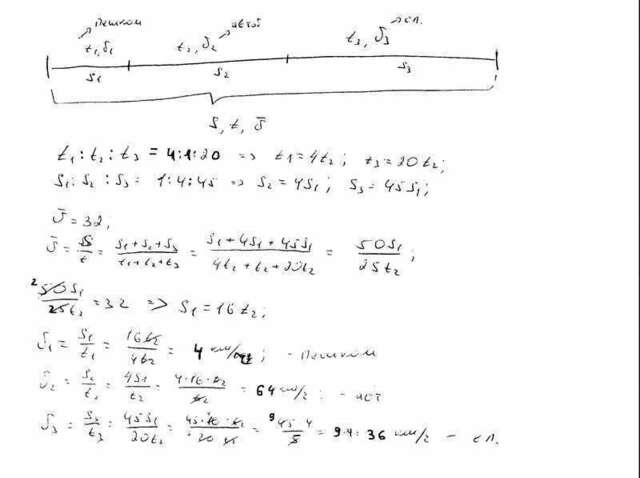 пешком
t₁, v₁ t₂, v₂ t₃, v₃
S₁ S₂ S₃
S, t, v̄
t₁ : t₂ : t₃ = 4:1:20 => t₁ = 4t₂; t₃ = 20t₂;
S₁ : S₂ : S₃ = 1:4:45 => S₂ = 4S₁; S₃ = 45S₁;
v̄ = 32,
v̄ = S/t = (S₁+S₂+S₃)/(t₁+t₂+t₃) = (S₁+4S₁+45S₁)/(4t₂+t₂+20t₂) = 50S₁/25t₂ ;
2 50S₁/25t₂ = 32 => S₁ = 16t₂;
v₁ = S₁/t₁ = 16t₂/4t₂ = 4 ; - пешком
v₂ = S₂/t₂ = 4S₁/t₂ = 4·16·t₂/t₂ = 64 км/г ; -
v₃ = S₃/t₃ = 45S₁/20t₂ = 45·16·t₂/20 t₂ = 9 45·4/5 = 9·4 = 36 км/г -